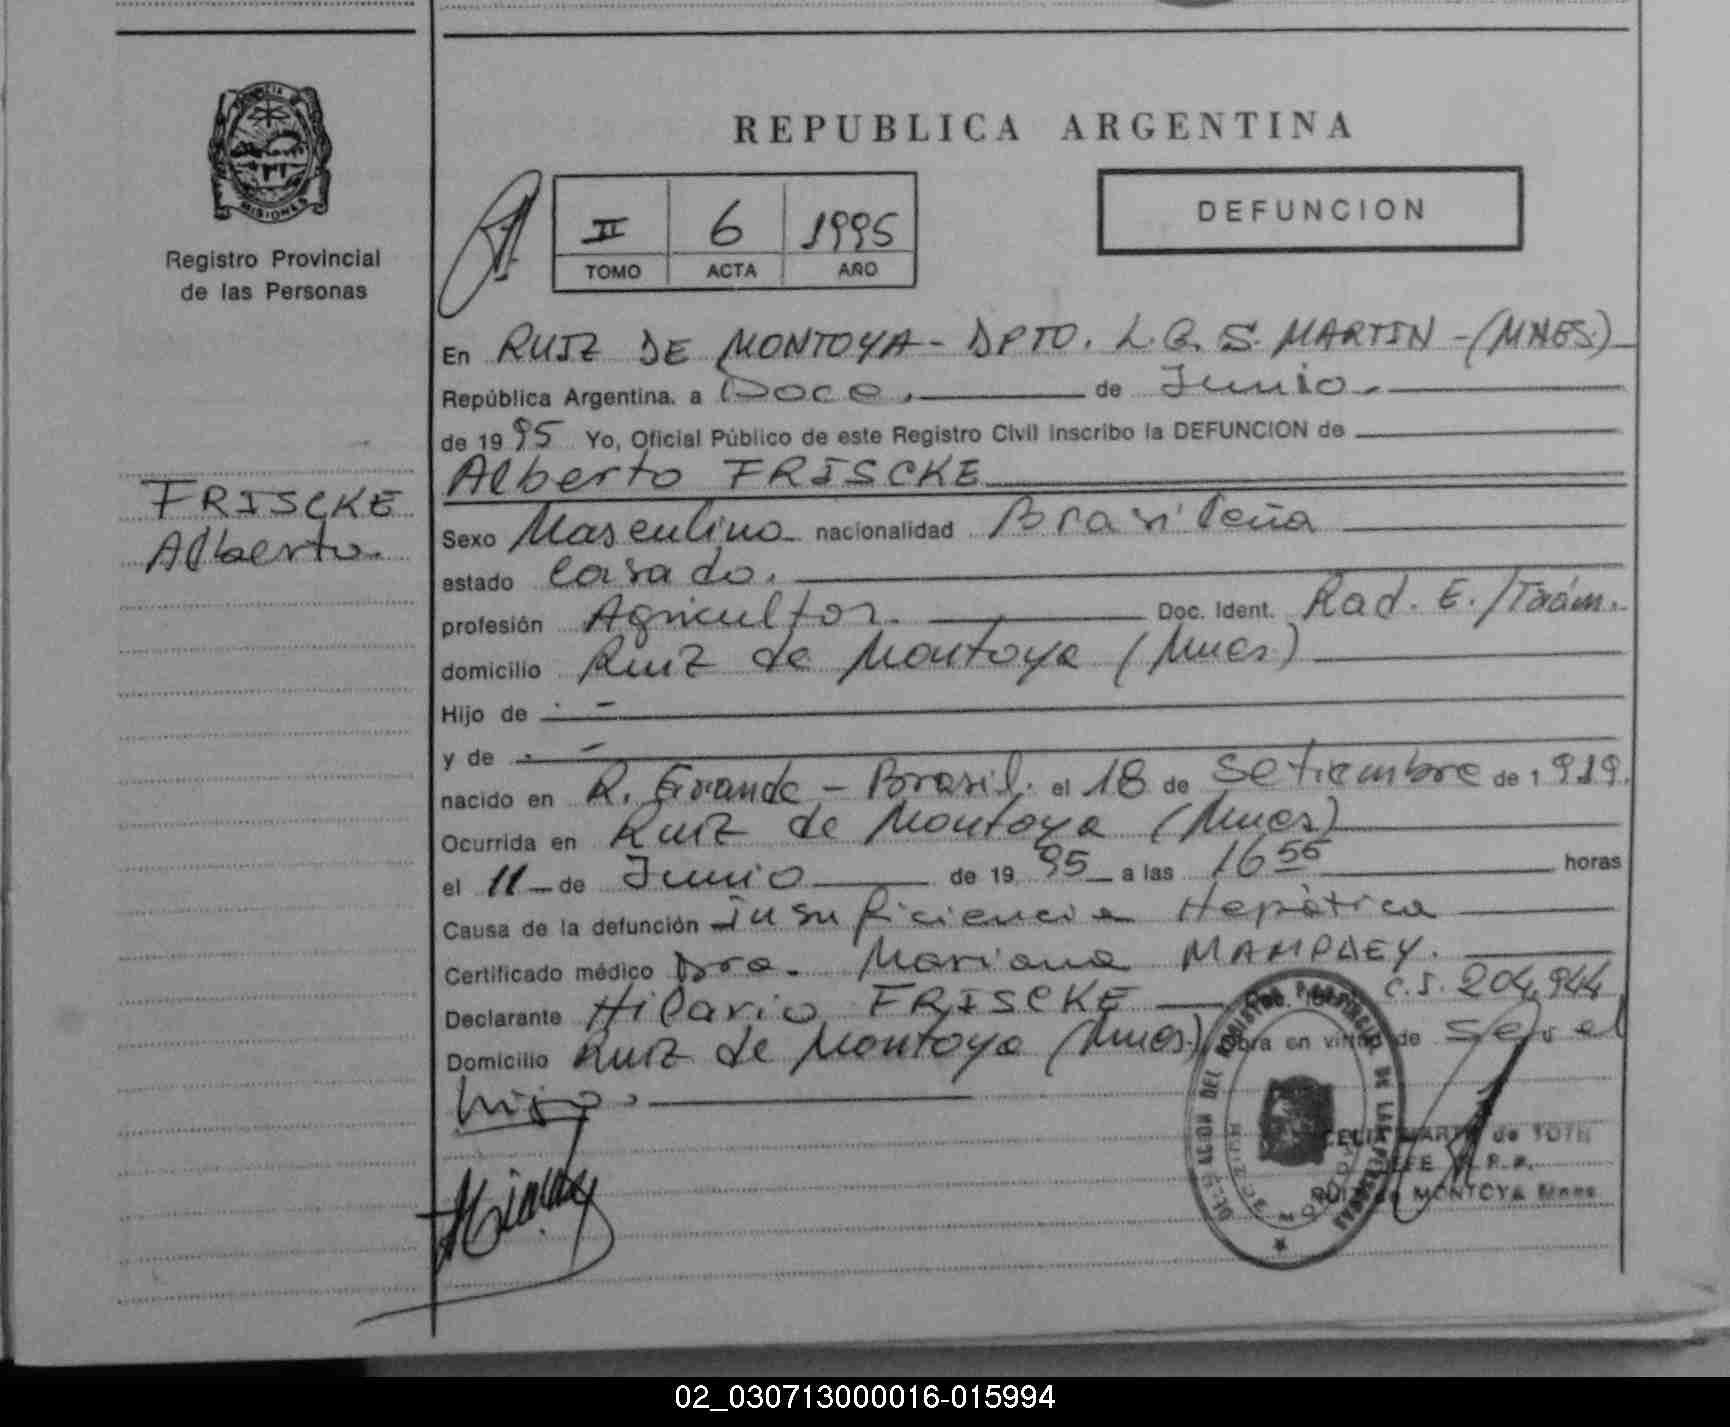 PROVINCIA DE
MISIONES
Registro Provincial
de las Personas
FRISCKE
Alberto.
REPUBLICA ARGENTINA
II 6 1995
TOMO ACTA AÑO
DEFUNCION
En RUIZ DE MONTOYA - DPTO. L.G.S. MARTIN - (MNES)
República Argentina, a Doce. de Junio.
de 1995 Yo, Oficial Público de este Registro Civil inscribo la DEFUNCION de
Alberto FRISCKE
Sexo Masculino nacionalidad Brasileña
estado Casado.
profesión Agricultor. Doc. Ident. Rad. E./Trám.
domicilio Ruiz de Montoya (Mnes)
Hijo de -
y de -
nacido en R. Grande - Brasil. el 18 de Setiembre de 1919.
Ocurrida en Ruiz de Montoya (Mnes)
el 11 de Junio de 1995 a las 16 55 horas
Causa de la defunción insuficiencia Hepática
Certificado médico Dra. Mariana
Declarante Hilario FRISCKE C.I. 204.944
Domicilio Ruiz de Montoya (Mnes) Obra en virtud de ser el
hijo.
DELEGACION DEL REGISTRO PROVINCIAL DE LAS PERSONAS
CELIA MARTA de TOTH
JEFE R. P. P.
RUIZ de MONTOYA Mnes.
02_030713000016-015994